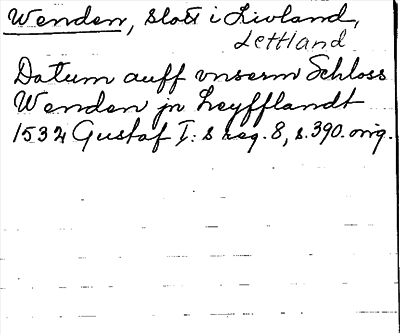 Wenden, slott i Livland,
Lettland
Datum auff vnserm Schloss
Wenden jn Leyfflandt
1534 Gustaf I: s reg. 8, s. 390. orig.